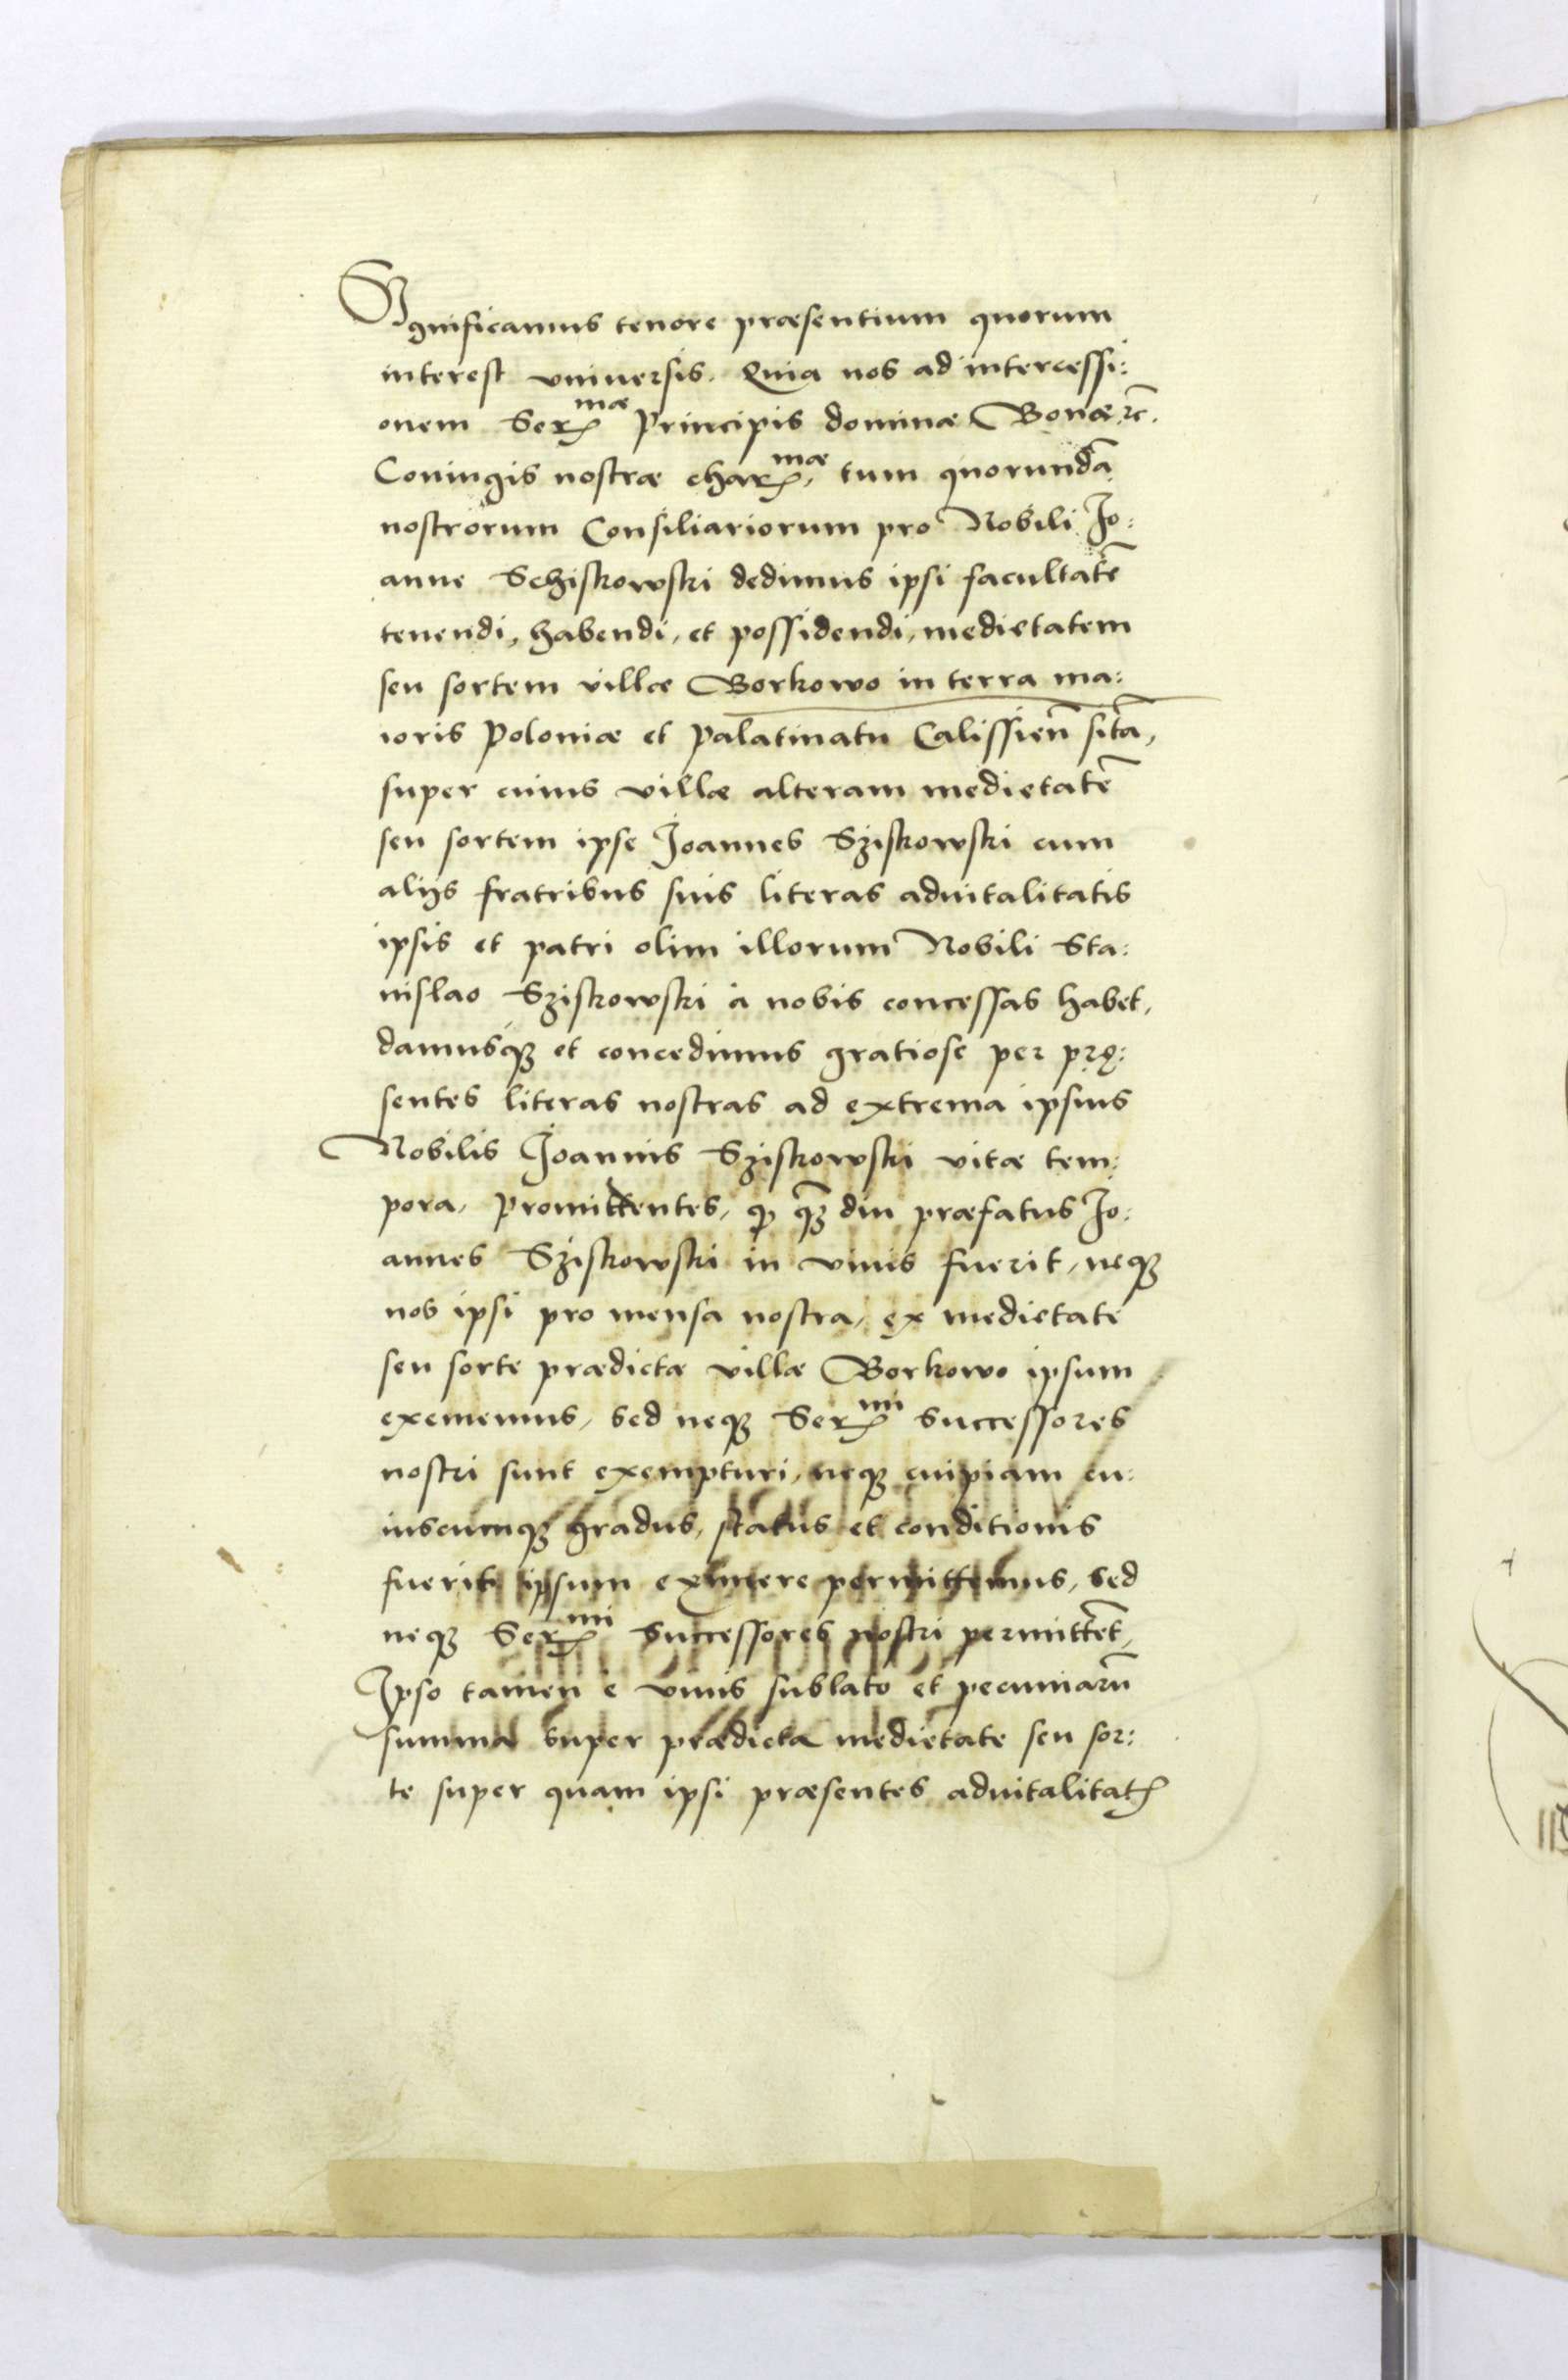 Significamus tenore præsentium quorum
interest vniuersis. Quia nos ad intercessi:
onem Ser^mæ Principis dominæ Bonæ etc.
Coniugis nostræ char^mæ, tum quorundā
nostrorum Consiliariorum pro Nobili Io:
anne Schiskowski dedimus ipsi facultatē
tenendi, habendi, et possidendi, medietatem
seu sortem villæ Borkowo in terra ma:
ioris Poloniæ et Palatinatu Calissieñ sitā,
super cuius villæ alteram medietatē
seu sortem ipse Joannes Sziskowski cum
alijs fratribus suis literas aduitalitatis
ipsis et patri olim illorum Nobili Sta:
nislao Sziskowski à nobis concessas habet,
damusqꝫ et concedimus gratiose per prę:
sentes literas nostras ad extrema ipsius
Nobilis Joannis Sziskowski vitæ tem:
pora, Promittentes, ꝙ qꝫ̄ diu præfatus Jo:
annes Sziskowski in viuis fuerit, neqꝫ
nos ipsi pro mensa nostra, ex medietate
seu sorte prædictæ villæ Borkowo ipsum
exememus, sed neqꝫ Ser^mi Successores
nostri sunt exempturi, neqꝫ cuipiam cu:
iuscumqꝫ gradus, status et conditionis
fuerit ipsum eximere permittemus, sed
neqꝫ Ser^mi Successores nostri permittēt,
Ipso tamen e viuis sublato et pecuniarū
summa super prædicta medietate seu sor:
te super quam ipsi præsentes aduitalitatꝭ